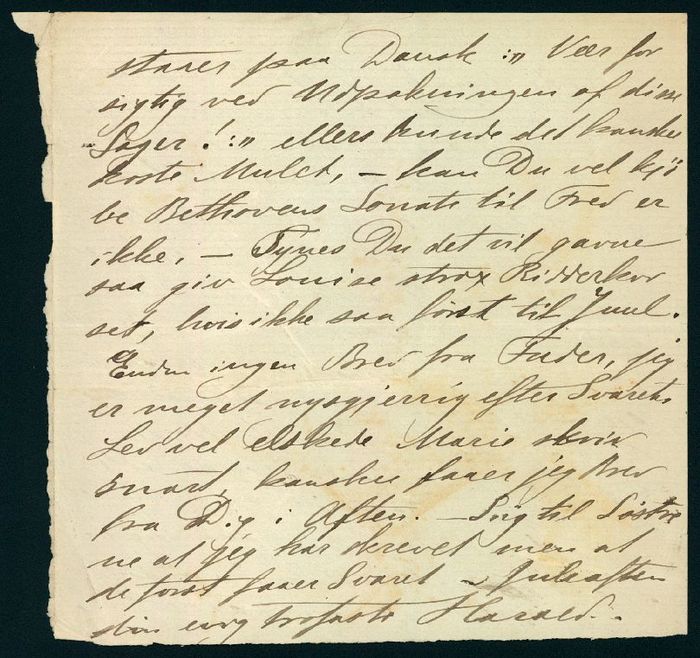 staaer paa Dansk :„ Vær for
sigtig ved Udpakningen af disse
Sager ! :„ ellers kunde det kanske
koste Mulct, – kan Du vel kjö
be Bethovens Sonate til Fred er
ikke. – Synes Du det vil gavne
saa giv Louise strax Ridderkor
set, hvis ikke saa först til Juul.
Endnu ingen Brev fra Fader, jeg
er meget nysgjerrig efter Svaret.
Lev vel elskede Marie skriv
snart, kanskee faaer jeg Brev
fra Dig i Aften. – Siig til Söstre
ne at jeg har skrevet men at
de först faaer Svaret – Juleaften
din evig trofaste Harald.